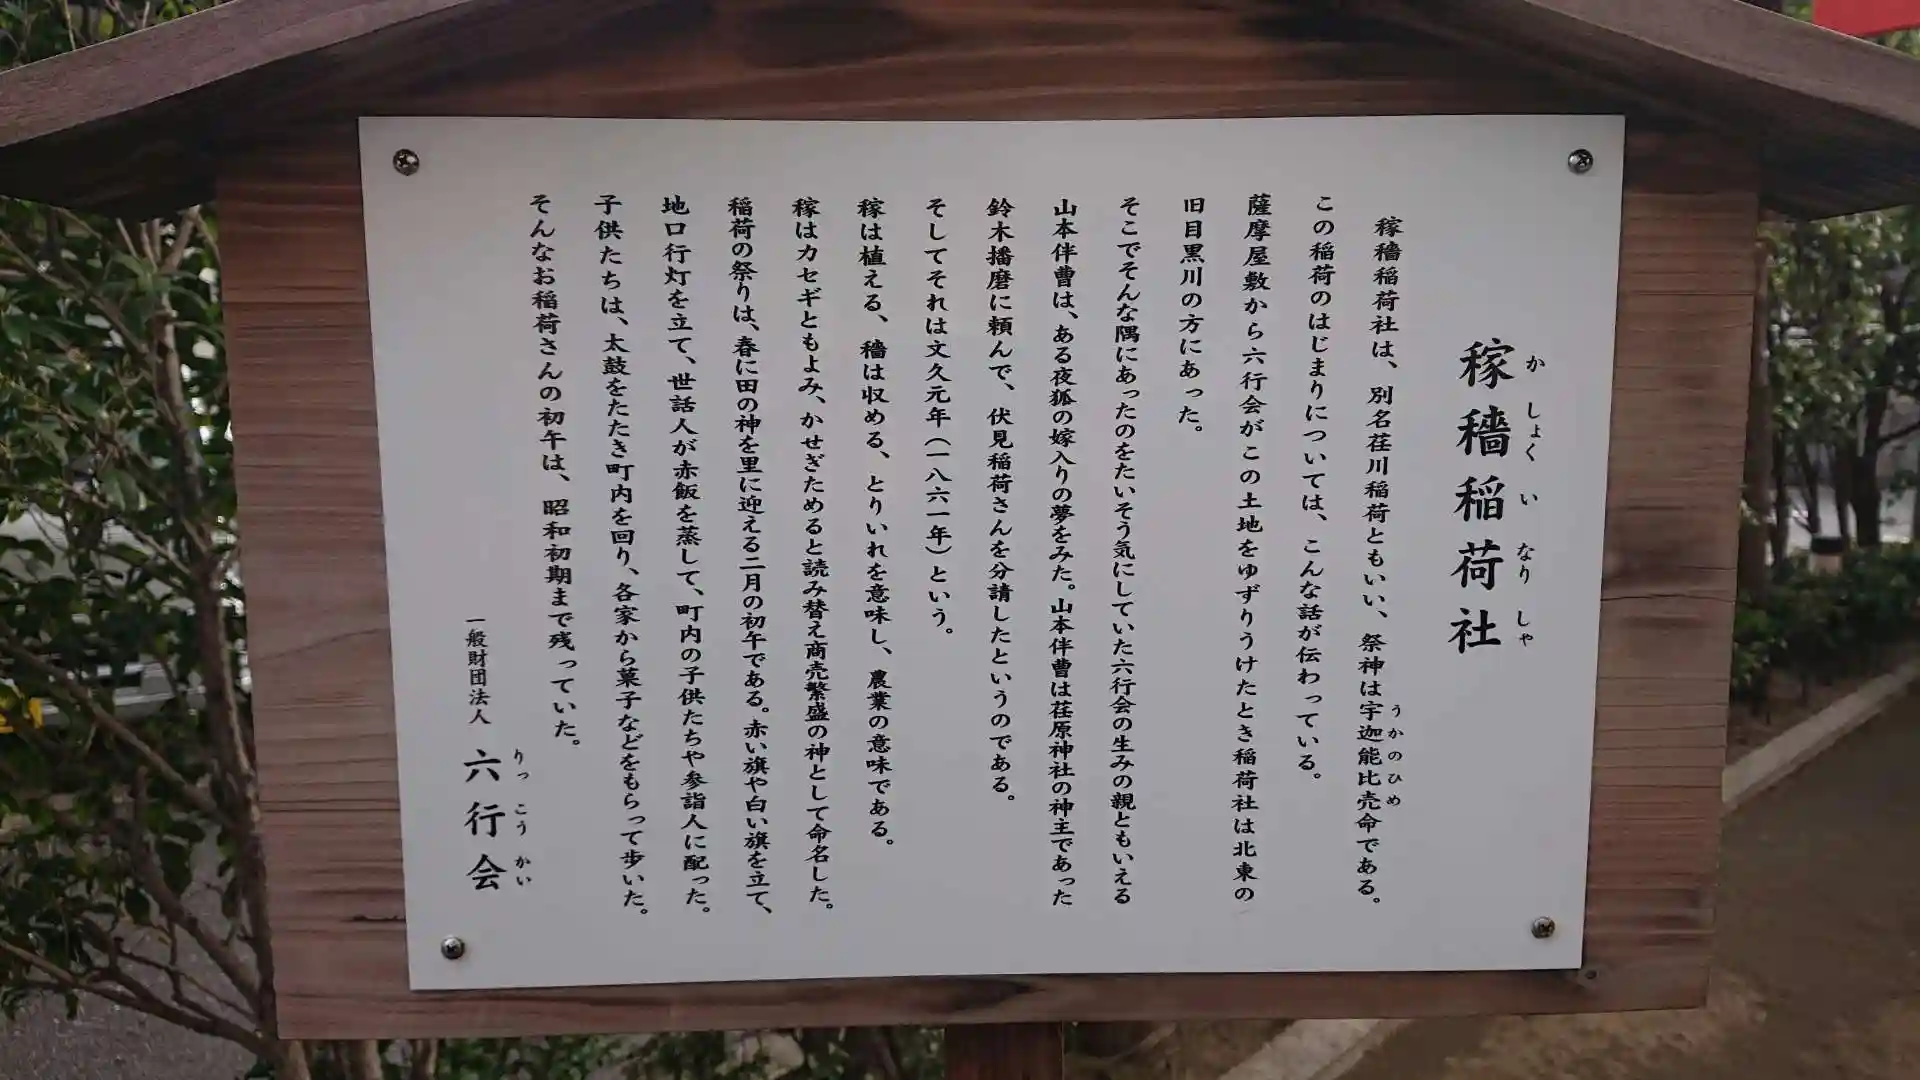 稼穡稲荷社
かしょくいなりしゃ
稼穡稲荷社は、別名荏川稲荷ともいい、祭神は宇迦能比売命である。
うかのひめ
この稲荷のはじまりについては、こんな話が伝わっている。
薩摩屋敷から六行会がこの土地をゆずりうけたとき稲荷社は北東の
旧目黒川の方にあった。
そこでそんな隅にあったのをたいそう気にしていた六行会の生みの親ともいえる
山本伴曹は、ある夜狐の嫁入りの夢をみた。山本伴曹は荏原神社の神主であった
鈴木播磨に頼んで、伏見稲荷さんを分請したというのである。
そしてそれは文久元年(一八六一年)という。
稼は植える、穡は収める、とりいれを意味し、農業の意味である。
稼はカセギともよみ、かせぎためると読み替え商売繁盛の神として命名した。
稲荷の祭りは、春に田の神を里に迎える二月の初午である。赤い旗や白い旗を立て、
地口行灯を立て、世話人が赤飯を蒸して、町内の子供たちや参詣人に配った。
子供たちは、太鼓をたたき町内を回り、各家から菓子などをもらって歩いた。
そんなお稲荷さんの初午は、昭和初期まで残っていた。
一般財団法人 六行会
りっこうかい